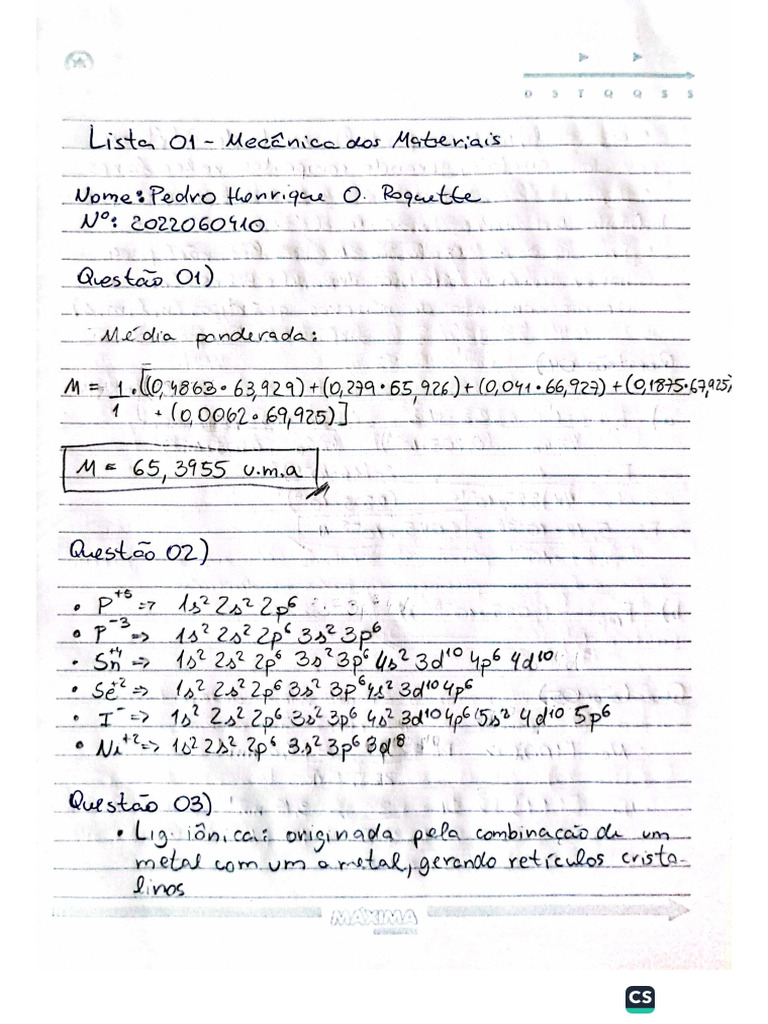 D S T Q Q S S
Lista 01 - Mecânica dos Materiais
Nome: Pedro Henrique O. Roquette
Nº: 2022060410
Questão 01)
Média ponderada:
M = 1/1 · [(0,4863 · 63,929) + (0,279 · 65,926) + (0,041 · 66,927) + (0,1875 · 67,925)
+ (0,0062 · 69,925)]
M = 65,3955 u.m.a
Questão 02)
• P⁺⁵ => 1s² 2s² 2p⁶
• P⁻³ => 1s² 2s² 2p⁶ 3s² 3p⁶
• Sn⁺⁴ => 1s² 2s² 2p⁶ 3s² 3p⁶ 4s² 3d¹⁰ 4p⁶ 4d¹⁰
• Se⁺² => 1s² 2s² 2p⁶ 3s² 3p⁶ 4s² 3d¹⁰ 4p⁶
• I⁻ => 1s² 2s² 2p⁶ 3s² 3p⁶ 4s² 3d¹⁰ 4p⁶ 5s² 4d¹⁰ 5p⁶
• Ni⁺² => 1s² 2s² 2p⁶ 3s² 3p⁶ 3d⁸
Questão 03)
• Lig iônica: originada pela combinação de um
metal com um ametal, gerando retículos crista-
linos
MÁXIMA
CS